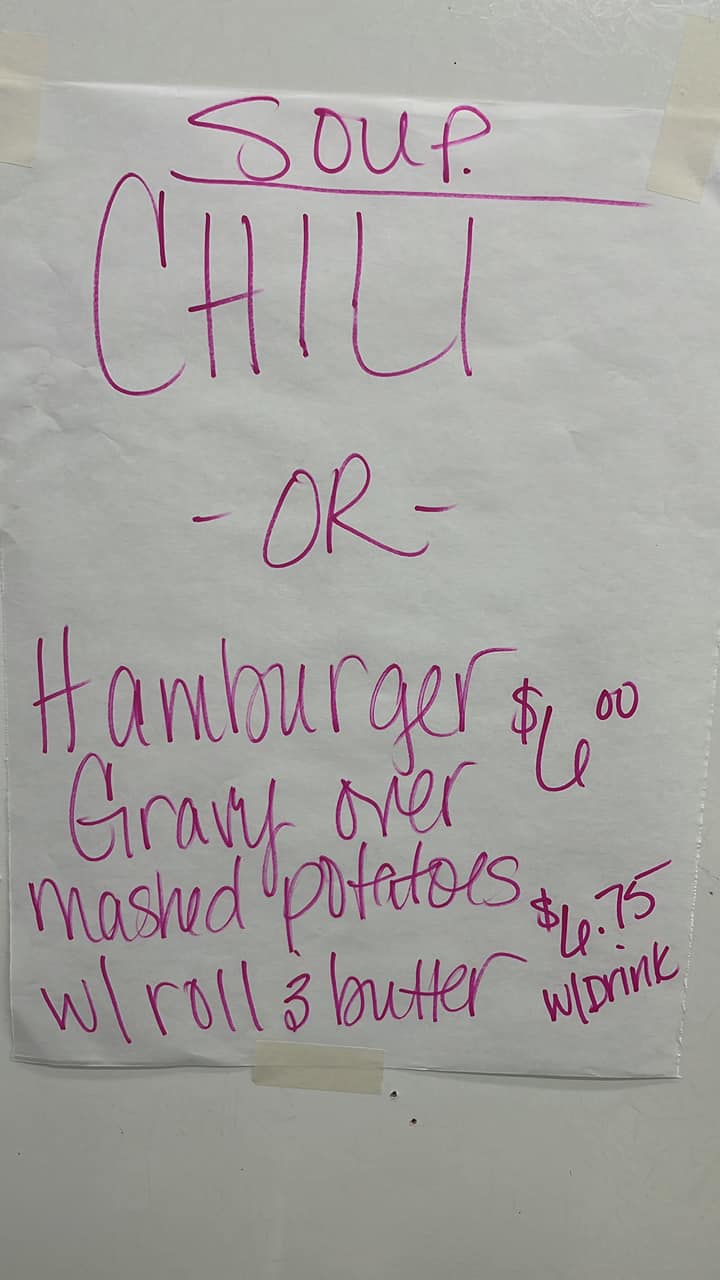 SOUP.
CHILI
- OR -
Hamburger $6.00
Gravy over
mashed potatoes $6.75
w/ roll & butter w/Drink